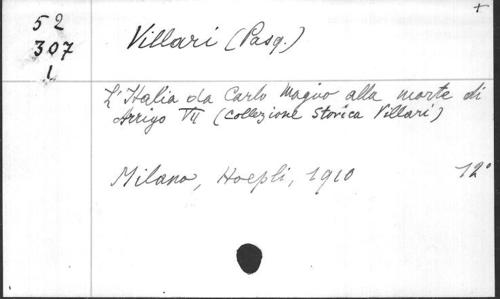 +
52
307
1
Villari (Pasq.)
L'Italia da Carlo Magno alla morte di
Arrigo VII (collezione storica Villari)
Milano, Hoepli, 1910 12°